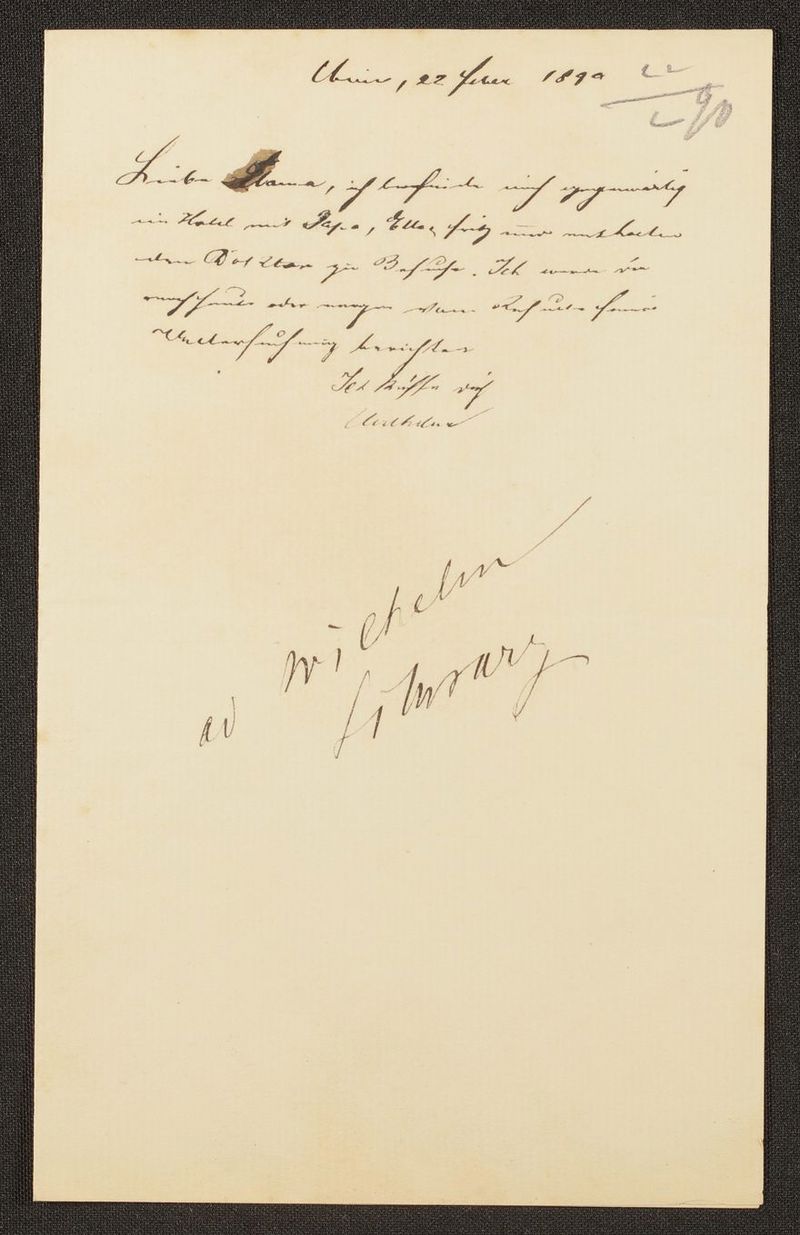 Wien, 22 Feber 1890
22
2 90
Liebe Mama, ich befinde mich gegenwärtig
im Hotel mit Papa, Ella, Fritz und
den Doktor zu Besuche. Ich werde dir
noch heute oder morgen vom Resultate seiner
Untersuchung berichten
Ich küsse dich
Wilhelm
ad Wilhelm
Schwarz